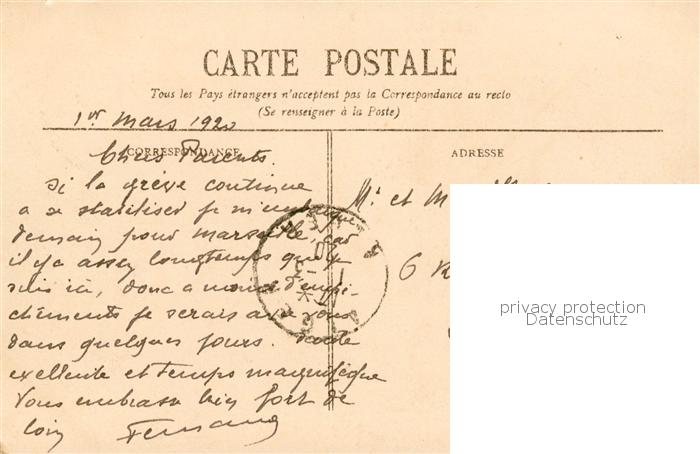 CARTE POSTALE
Tous les Pays étrangers n'acceptent pas la Correspondance au recto
(Se renseigner à la Poste)
1er Mars 1920
CORRESPONDANCE
ADRESSE
Chers Parents.
Si la grève continue
a se stabiliser je m'embarque
demain pour marseille, car
il y a assez longtemps que je
suis ici, donc a moins d'empê-
chements je serais avec vous
dans quelques jours. Santé
exellente et temps magnifique
Vous embrasse bien fort de
loin Fernand
Mr et M
6 R
privacy protection
Datenschutz